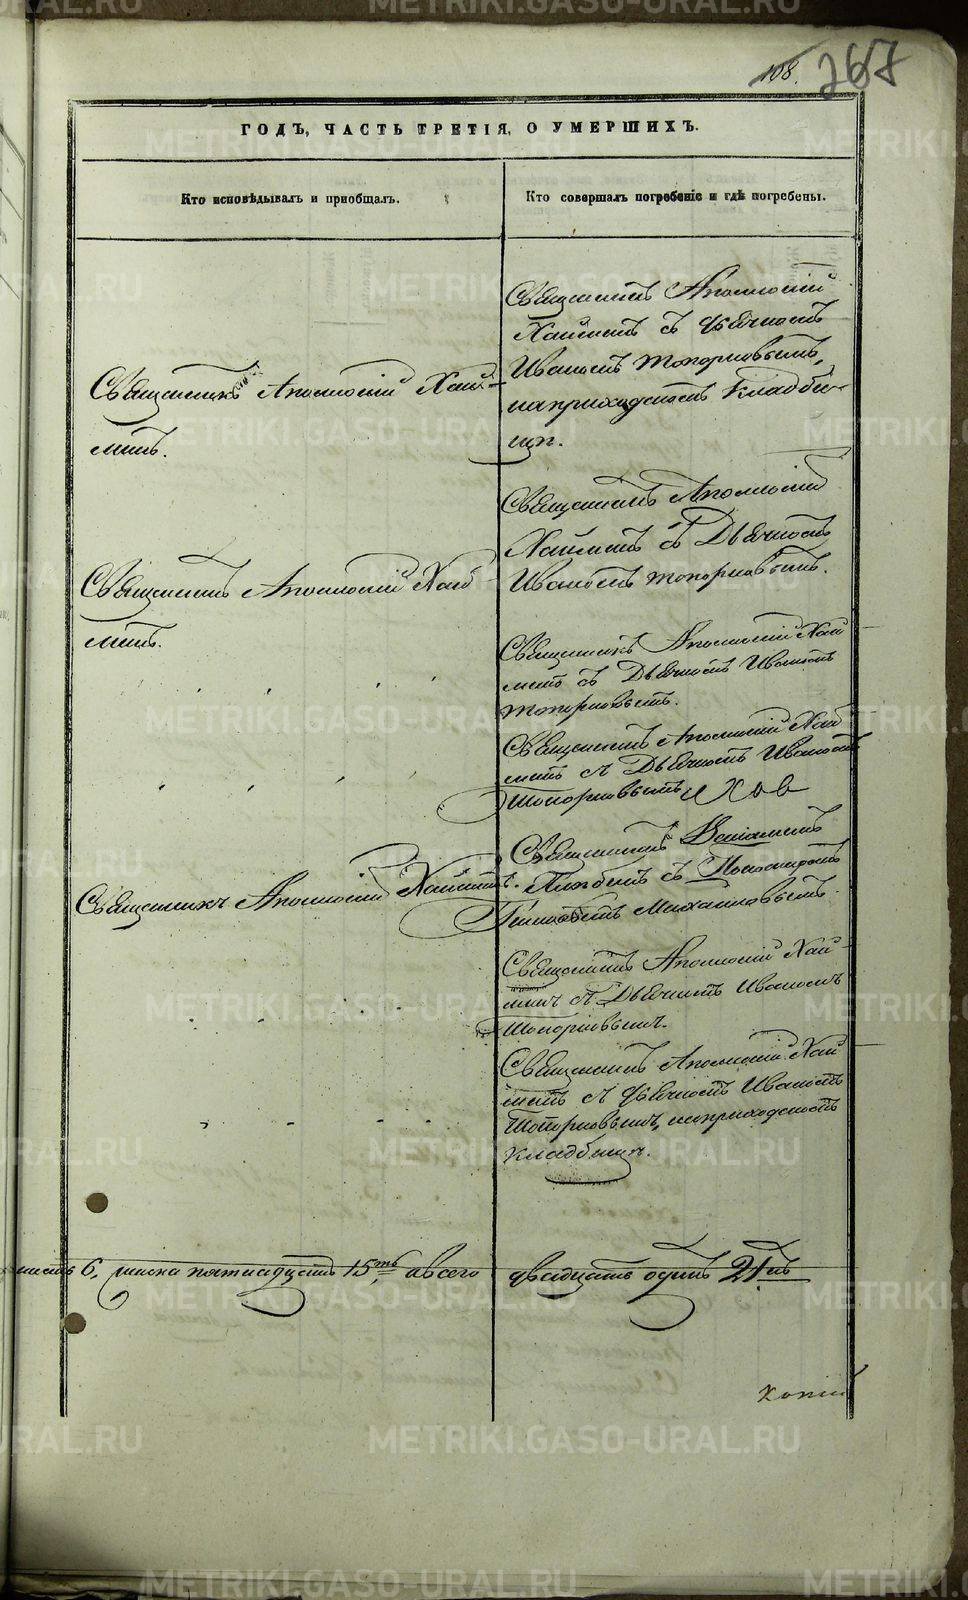 108.
267
ГОДЪ, ЧАСТЬ ТРЕТІЯ, О УМЕРШИХЪ.
Кто исповѣдывалъ и приобщалъ.
Кто совершалъ погребеніе и гдѣ погребены.
Священникъ Аполлоній Хай-
минъ.
Священникъ Аполлоній
Хайминъ съ дьячкомъ
Иваномъ Топорковымъ,
наприходскомъ кладби-
щѣ.
Священникъ Аполлоній Хай
минъ.
Священникъ Аполлоній
Хайминъ съ Дьячкомъ
Иваномъ Топорковымъ.
Священникъ Аполлоній Хай
минъ съ Дьячкомъ Иваномъ
Топорковымъ.
Священникъ Аполлоній Хай
минъ съ Дьячкомъ Иваномъ
Топорковымъ
Священникъ Аполлоній Хайминъ.
Священникъ
съ Пономаремъ
Михайловымъ.
Священникъ Аполлоній Хай-
минъ съ Дьячкомъ Иваномъ
Топорковымъ.
Священникъ Аполлоній Хай
минъ съ дьячкомъ Иваномъ
Топорковымъ, наприходскомъ
кладбищѣ.
6, пятнадцать 15ть авсего двадцать одинъ 21нъ
METRIKI.GASO-URAL.RU